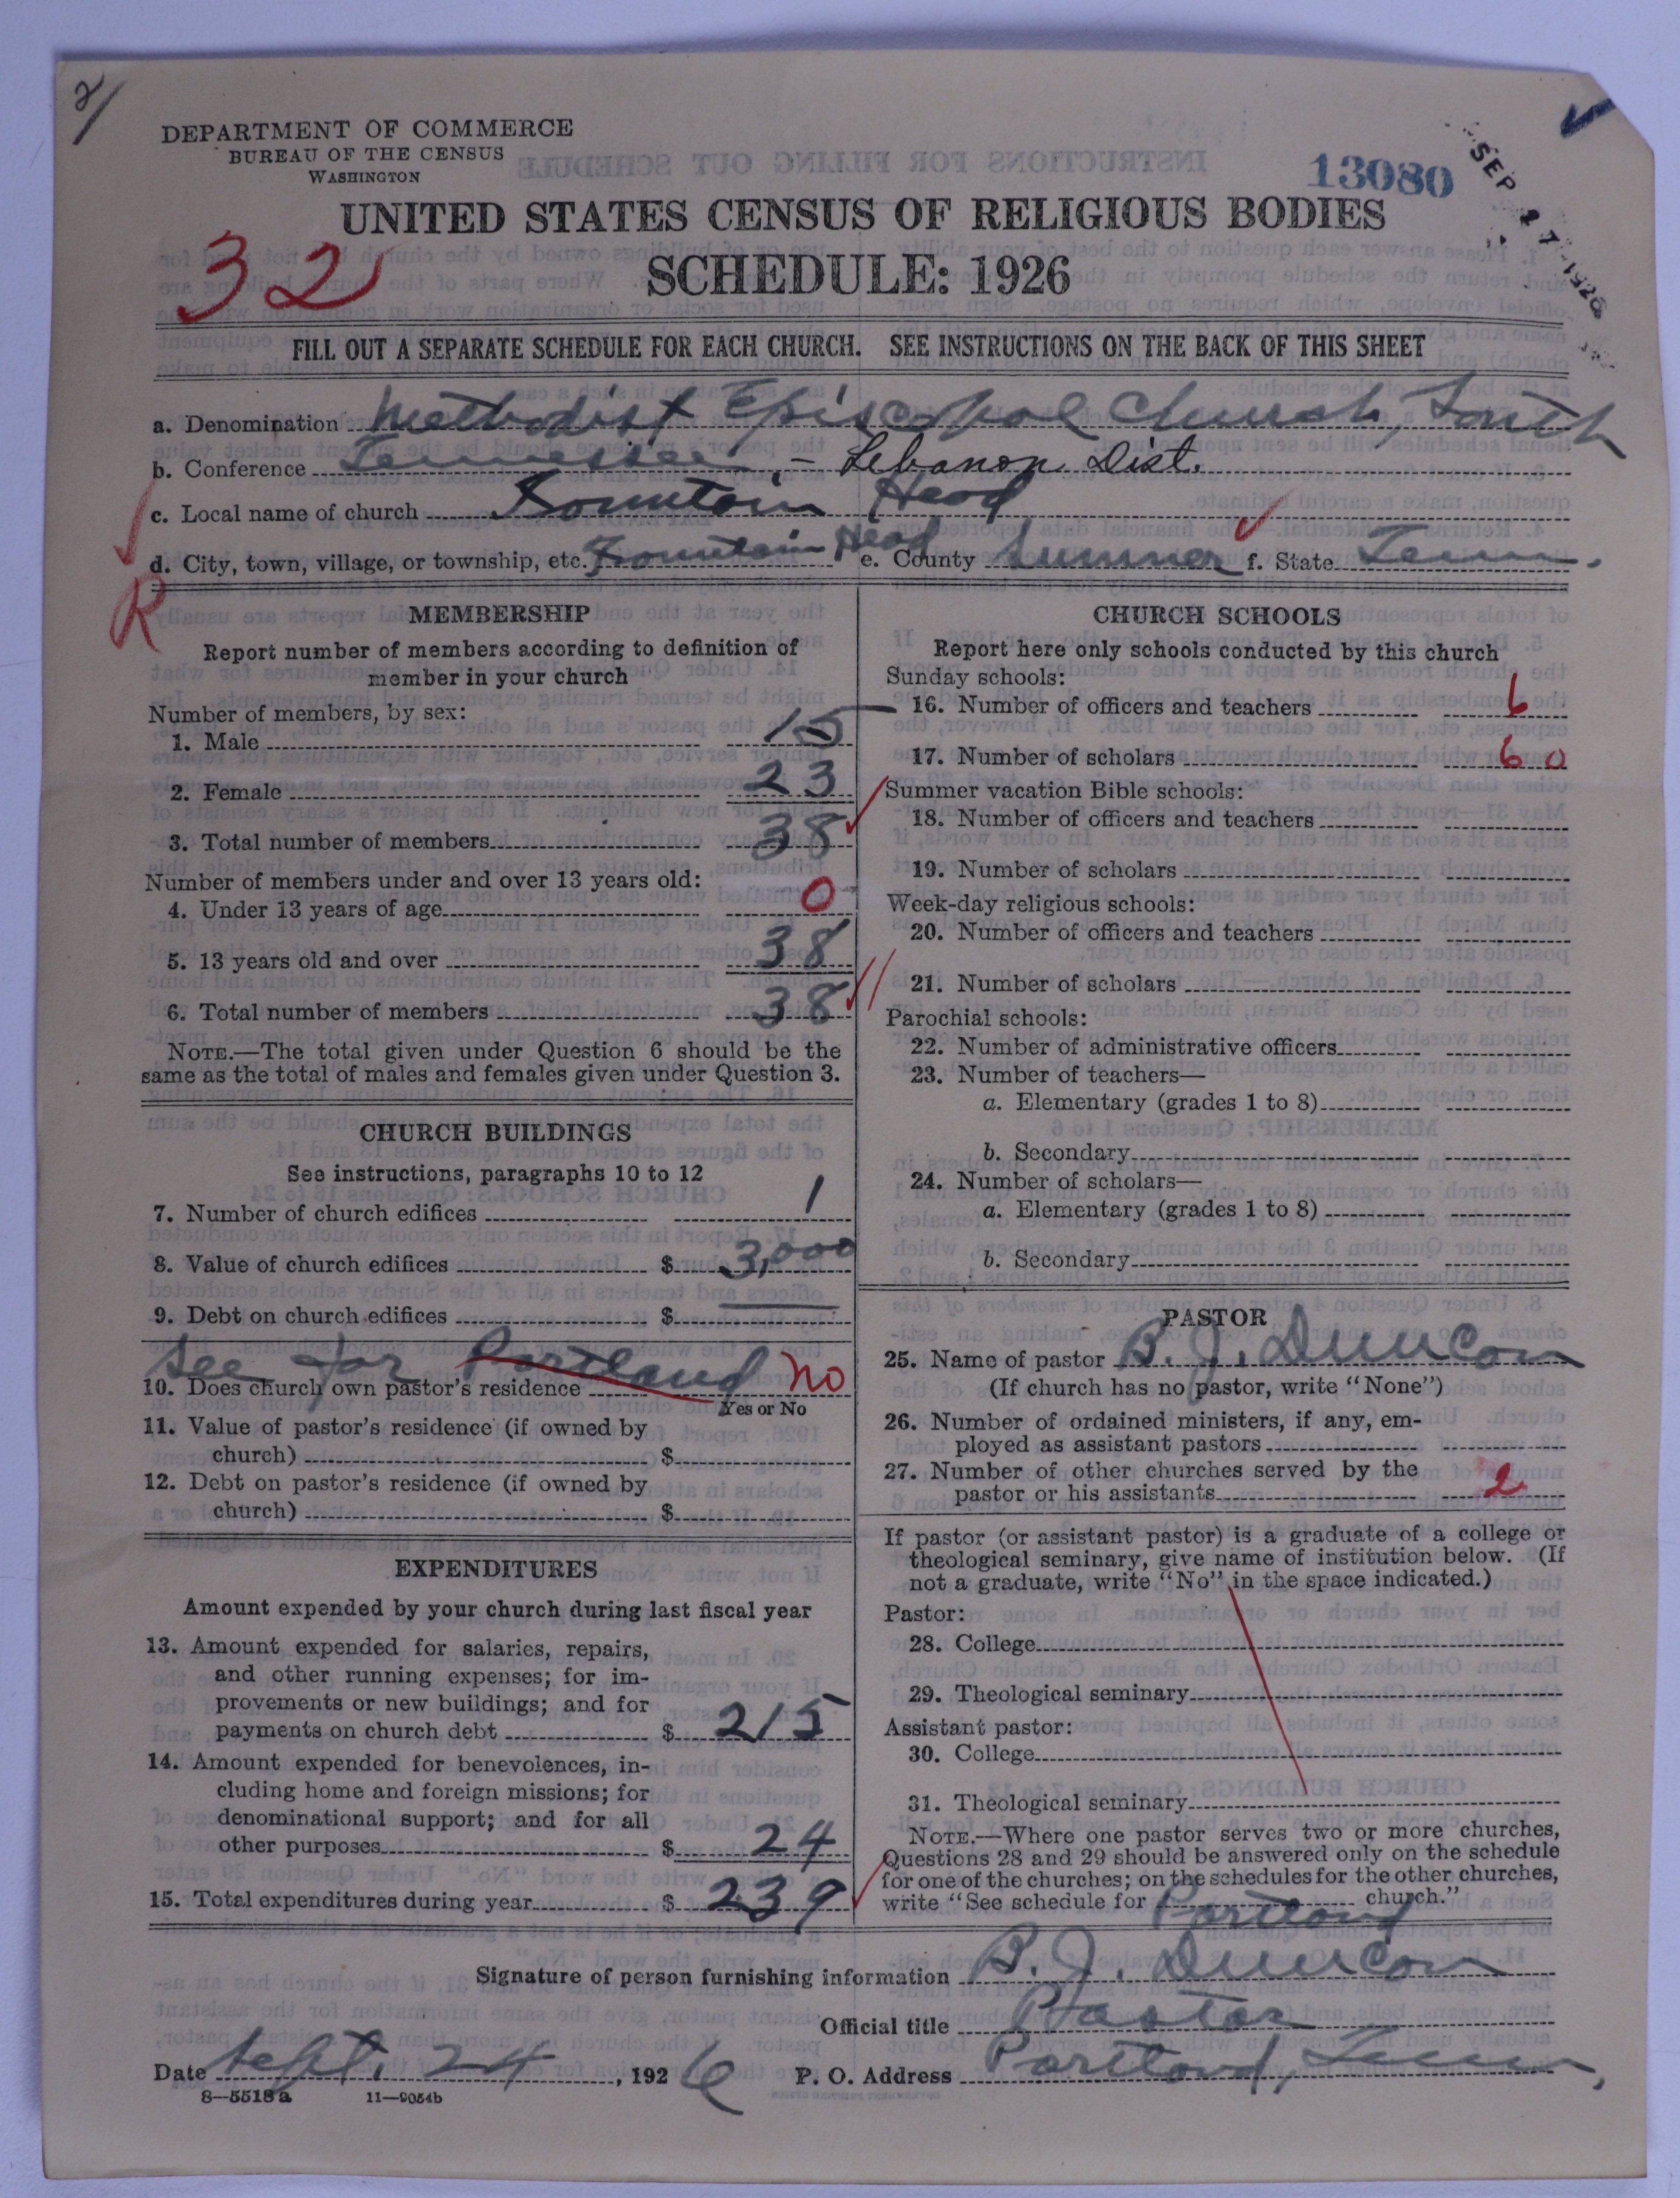 2/
DEPARTMENT OF COMMERCE
BUREAU OF THE CENSUS
WASHINGTON
13080
SEP 27 1926
UNITED STATES CENSUS OF RELIGIOUS BODIES
32
SCHEDULE: 1926
FILL OUT A SEPARATE SCHEDULE FOR EACH CHURCH. SEE INSTRUCTIONS ON THE BACK OF THIS SHEET
a. Denomination Methodist Episcopal Church, South
b. Conference Tennessee - Lebanon Dist.
c. Local name of church Fountain Head
d. City, town, village, or township, etc. Fountain Head e. County Sumner f. State Tenn.
R
MEMBERSHIP
Report number of members according to definition of
member in your church
Number of members, by sex:
1. Male 15
2. Female 23
3. Total number of members 38
Number of members under and over 13 years old:
4. Under 13 years of age 0
5. 13 years old and over 38
6. Total number of members 38
NOTE.—The total given under Question 6 should be the
same as the total of males and females given under Question 3.
CHURCH BUILDINGS
See instructions, paragraphs 10 to 12
7. Number of church edifices 1
8. Value of church edifices $ 3,000
9. Debt on church edifices $
See for Portland
10. Does church own pastor's residence No
Yes or No
11. Value of pastor's residence (if owned by
church) $
12. Debt on pastor's residence (if owned by
church) $
EXPENDITURES
Amount expended by your church during last fiscal year
13. Amount expended for salaries, repairs,
and other running expenses; for im-
provements or new buildings; and for
payments on church debt $ 215
14. Amount expended for benevolences, in-
cluding home and foreign missions; for
denominational support; and for all
other purposes $ 24
15. Total expenditures during year $ 239
CHURCH SCHOOLS
Report here only schools conducted by this church
Sunday schools:
16. Number of officers and teachers 6
17. Number of scholars 60
Summer vacation Bible schools:
18. Number of officers and teachers
19. Number of scholars
Week-day religious schools:
20. Number of officers and teachers
21. Number of scholars
Parochial schools:
22. Number of administrative officers
23. Number of teachers—
a. Elementary (grades 1 to 8)
b. Secondary
24. Number of scholars—
a. Elementary (grades 1 to 8)
b. Secondary
PASTOR
25. Name of pastor B. J. Duncan
(If church has no pastor, write "None")
26. Number of ordained ministers, if any, em-
ployed as assistant pastors
27. Number of other churches served by the
pastor or his assistants 2
If pastor (or assistant pastor) is a graduate of a college or
theological seminary, give name of institution below. (If
not a graduate, write "No" in the space indicated.)
Pastor:
28. College
29. Theological seminary
Assistant pastor:
30. College
31. Theological seminary
NOTE.—Where one pastor serves two or more churches,
Questions 28 and 29 should be answered only on the schedule
for one of the churches; on the schedules for the other churches,
write "See schedule for Portland church."
Signature of person furnishing information B. J. Duncan
Official title Pastor
Date Sept. 24, 1926 P. O. Address Portland, Tenn.
8—5518a 11—9054b